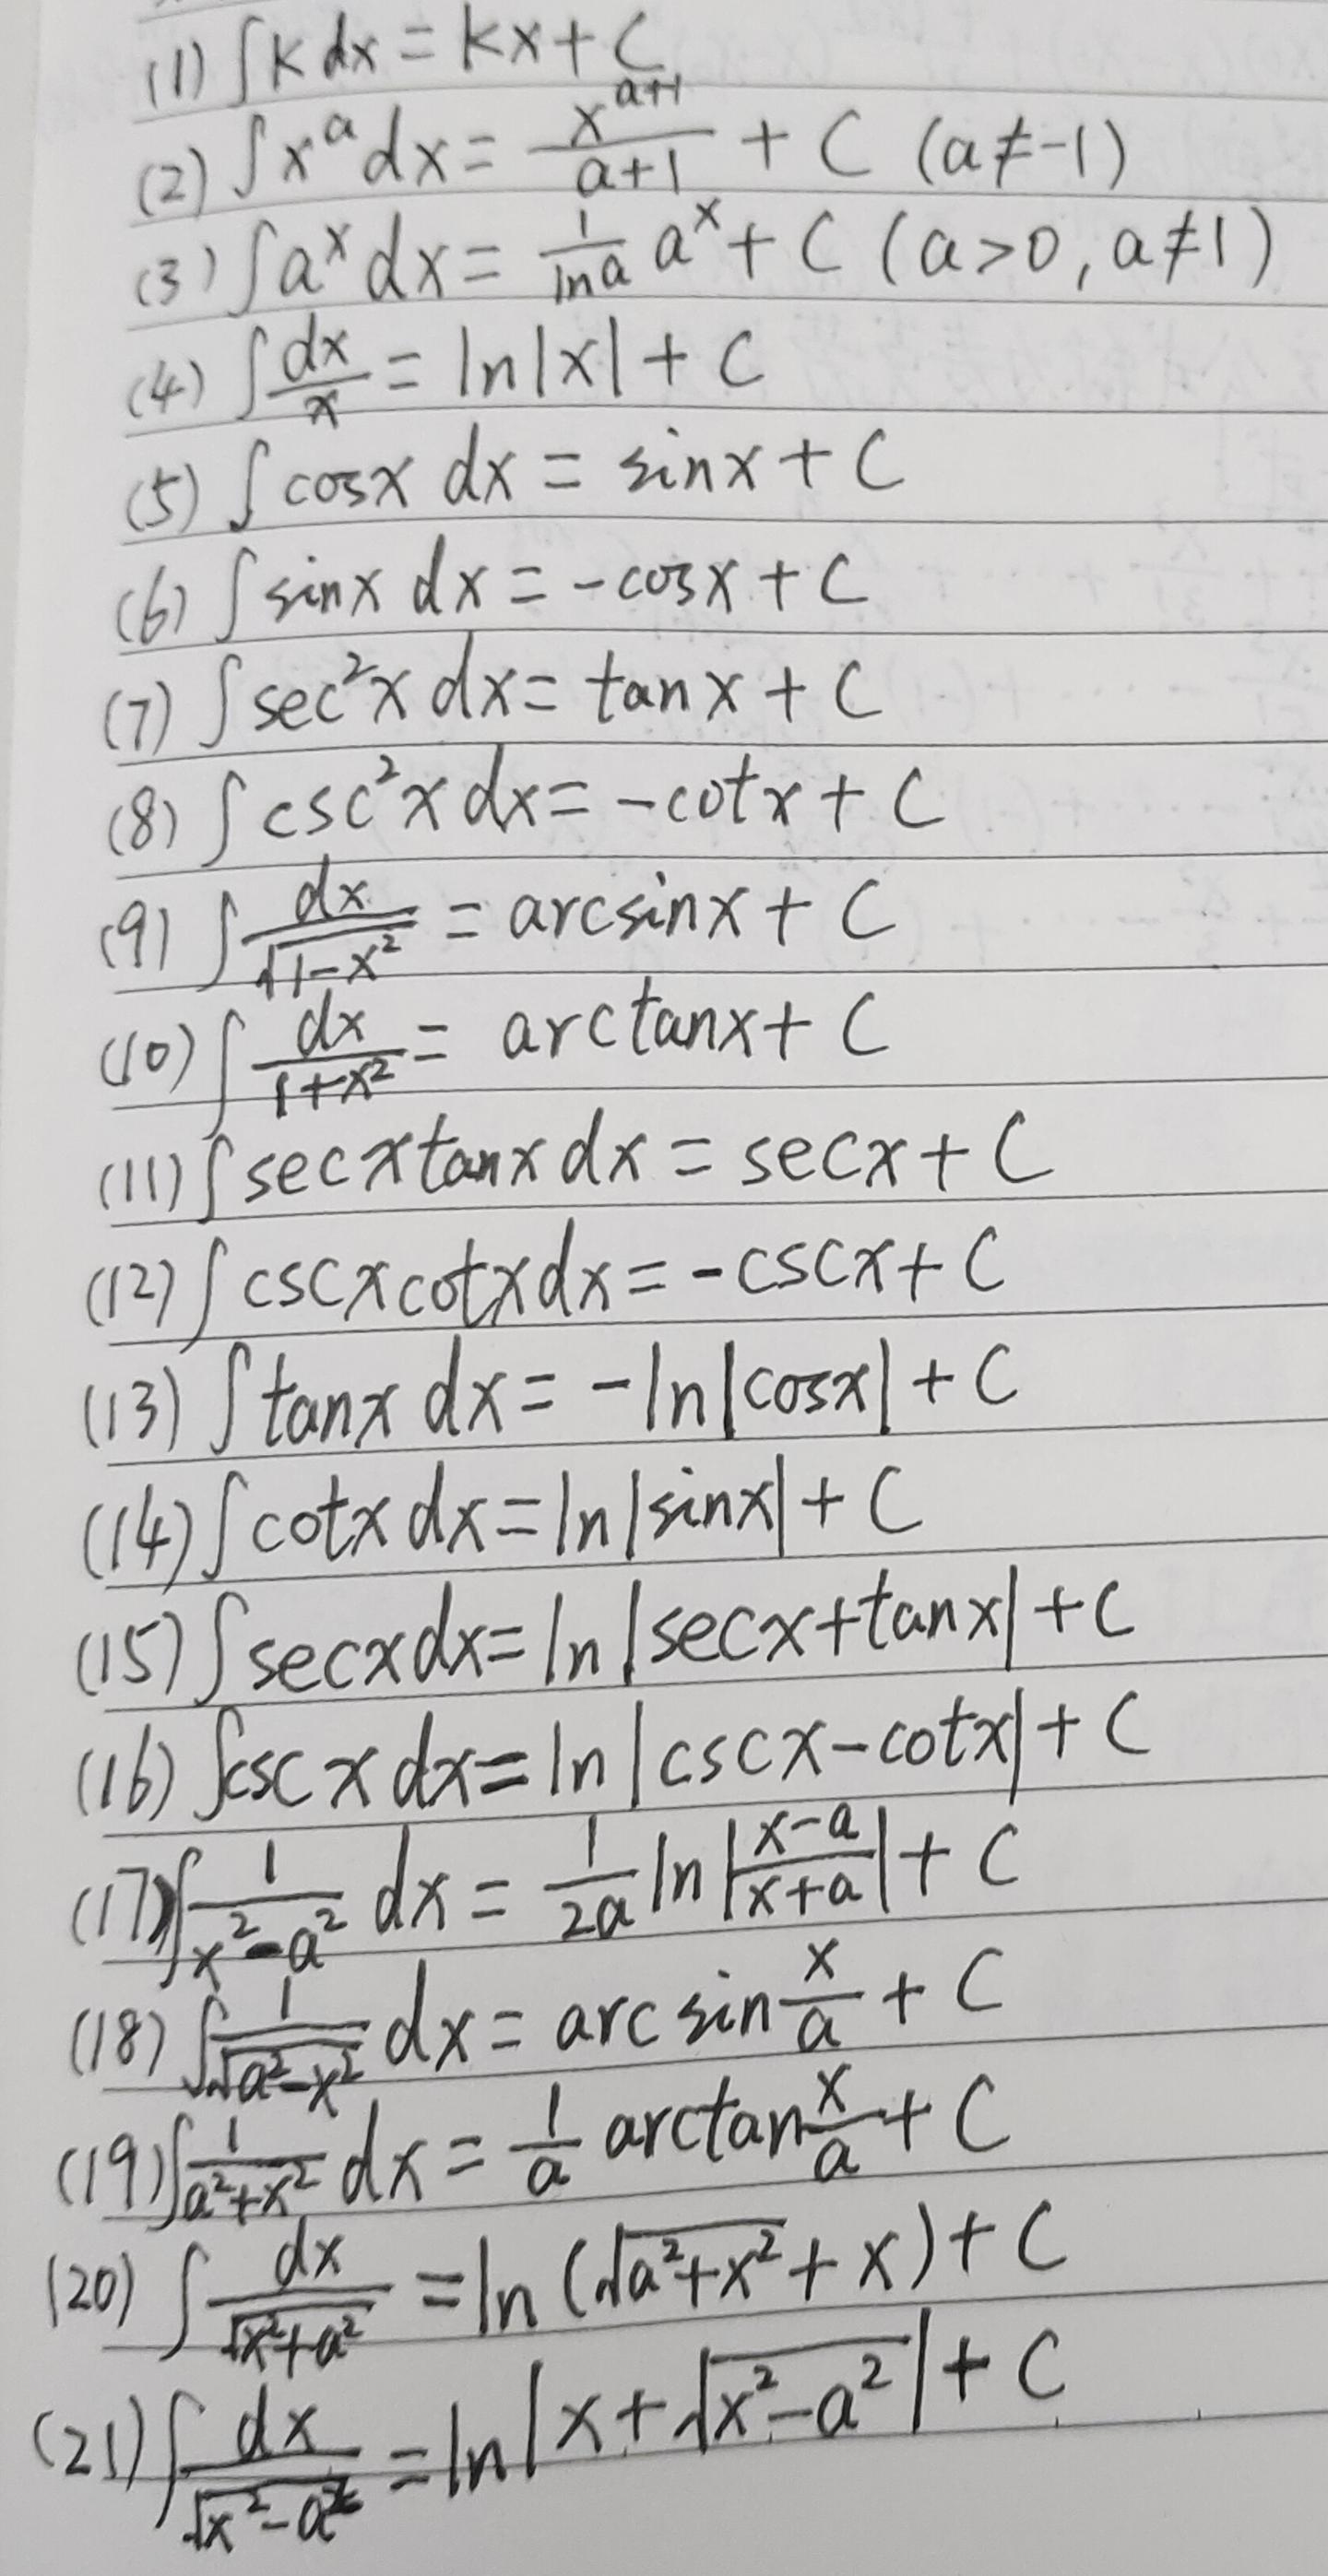 (1) ∫k dx = kx + C
(2) ∫x^a dx = x^(a+1)/(a+1) + C (a≠-1)
(3) ∫a^x dx = 1/(ln a) a^x + C (a>0, a≠1)
(4) ∫dx/x = ln|x| + C
(5) ∫cosx dx = sinx + C
(6) ∫sinx dx = -cosx + C
(7) ∫sec²x dx = tanx + C
(8) ∫csc²x dx = -cotx + C
(9) ∫dx/√(1-x²) = arcsinx + C
(10) ∫dx/(1+x²) = arctanx + C
(11) ∫secxtanx dx = secx + C
(12) ∫cscxcotx dx = -cscx + C
(13) ∫tanx dx = -ln|cosx| + C
(14) ∫cotx dx = ln|sinx| + C
(15) ∫secx dx = ln|secx+tanx| + C
(16) ∫cscx dx = ln|cscx-cotx| + C
(17) ∫1/(x²-a²) dx = 1/(2a) ln|(x-a)/(x+a)| + C
(18) ∫1/√(a²-x²) dx = arcsin x/a + C
(19) ∫1/(a²+x²) dx = 1/a arctan x/a + C
(20) ∫dx/√(x²+a²) = ln(√(a²+x²) + x) + C
(21) ∫dx/√(x²-a²) = ln|x + √(x²-a²)| + C